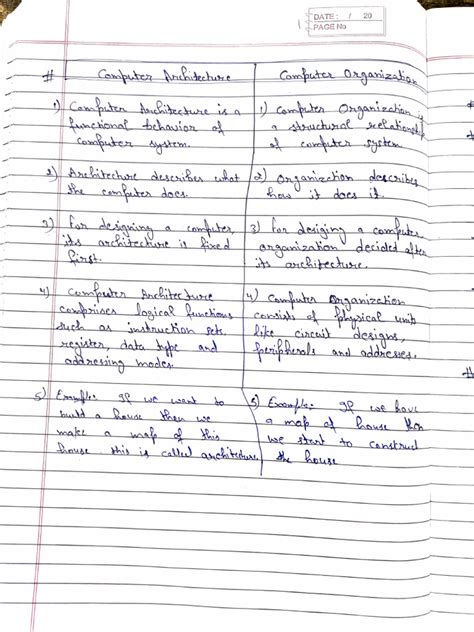 DATE: / 20
PAGE No
# Computer Architecture
Computer Organization
1) Computer Architecture is a
functional behavior of
computer system.
1) Computer Organization is
a structural relationship
of computer system
2) Architecture describes what
the computer does.
2) Organization describes
how it does it.
3) For designing a computer,
its architecture is fixed
first.
3) For desiging a computer
organization decided after
its architecture.
4) Computer Architecture
comprises logical functions
such as instruction sets
register, data type and
addressing modes
4) Computer Organization
consists of physical unit
like circuit designs,
peripherals and addresses.
5) Example: If we want to
build a house then we
make a map of this
house this is called architecture.
5) Example: If we have
a map of house then
we start to construct
the house